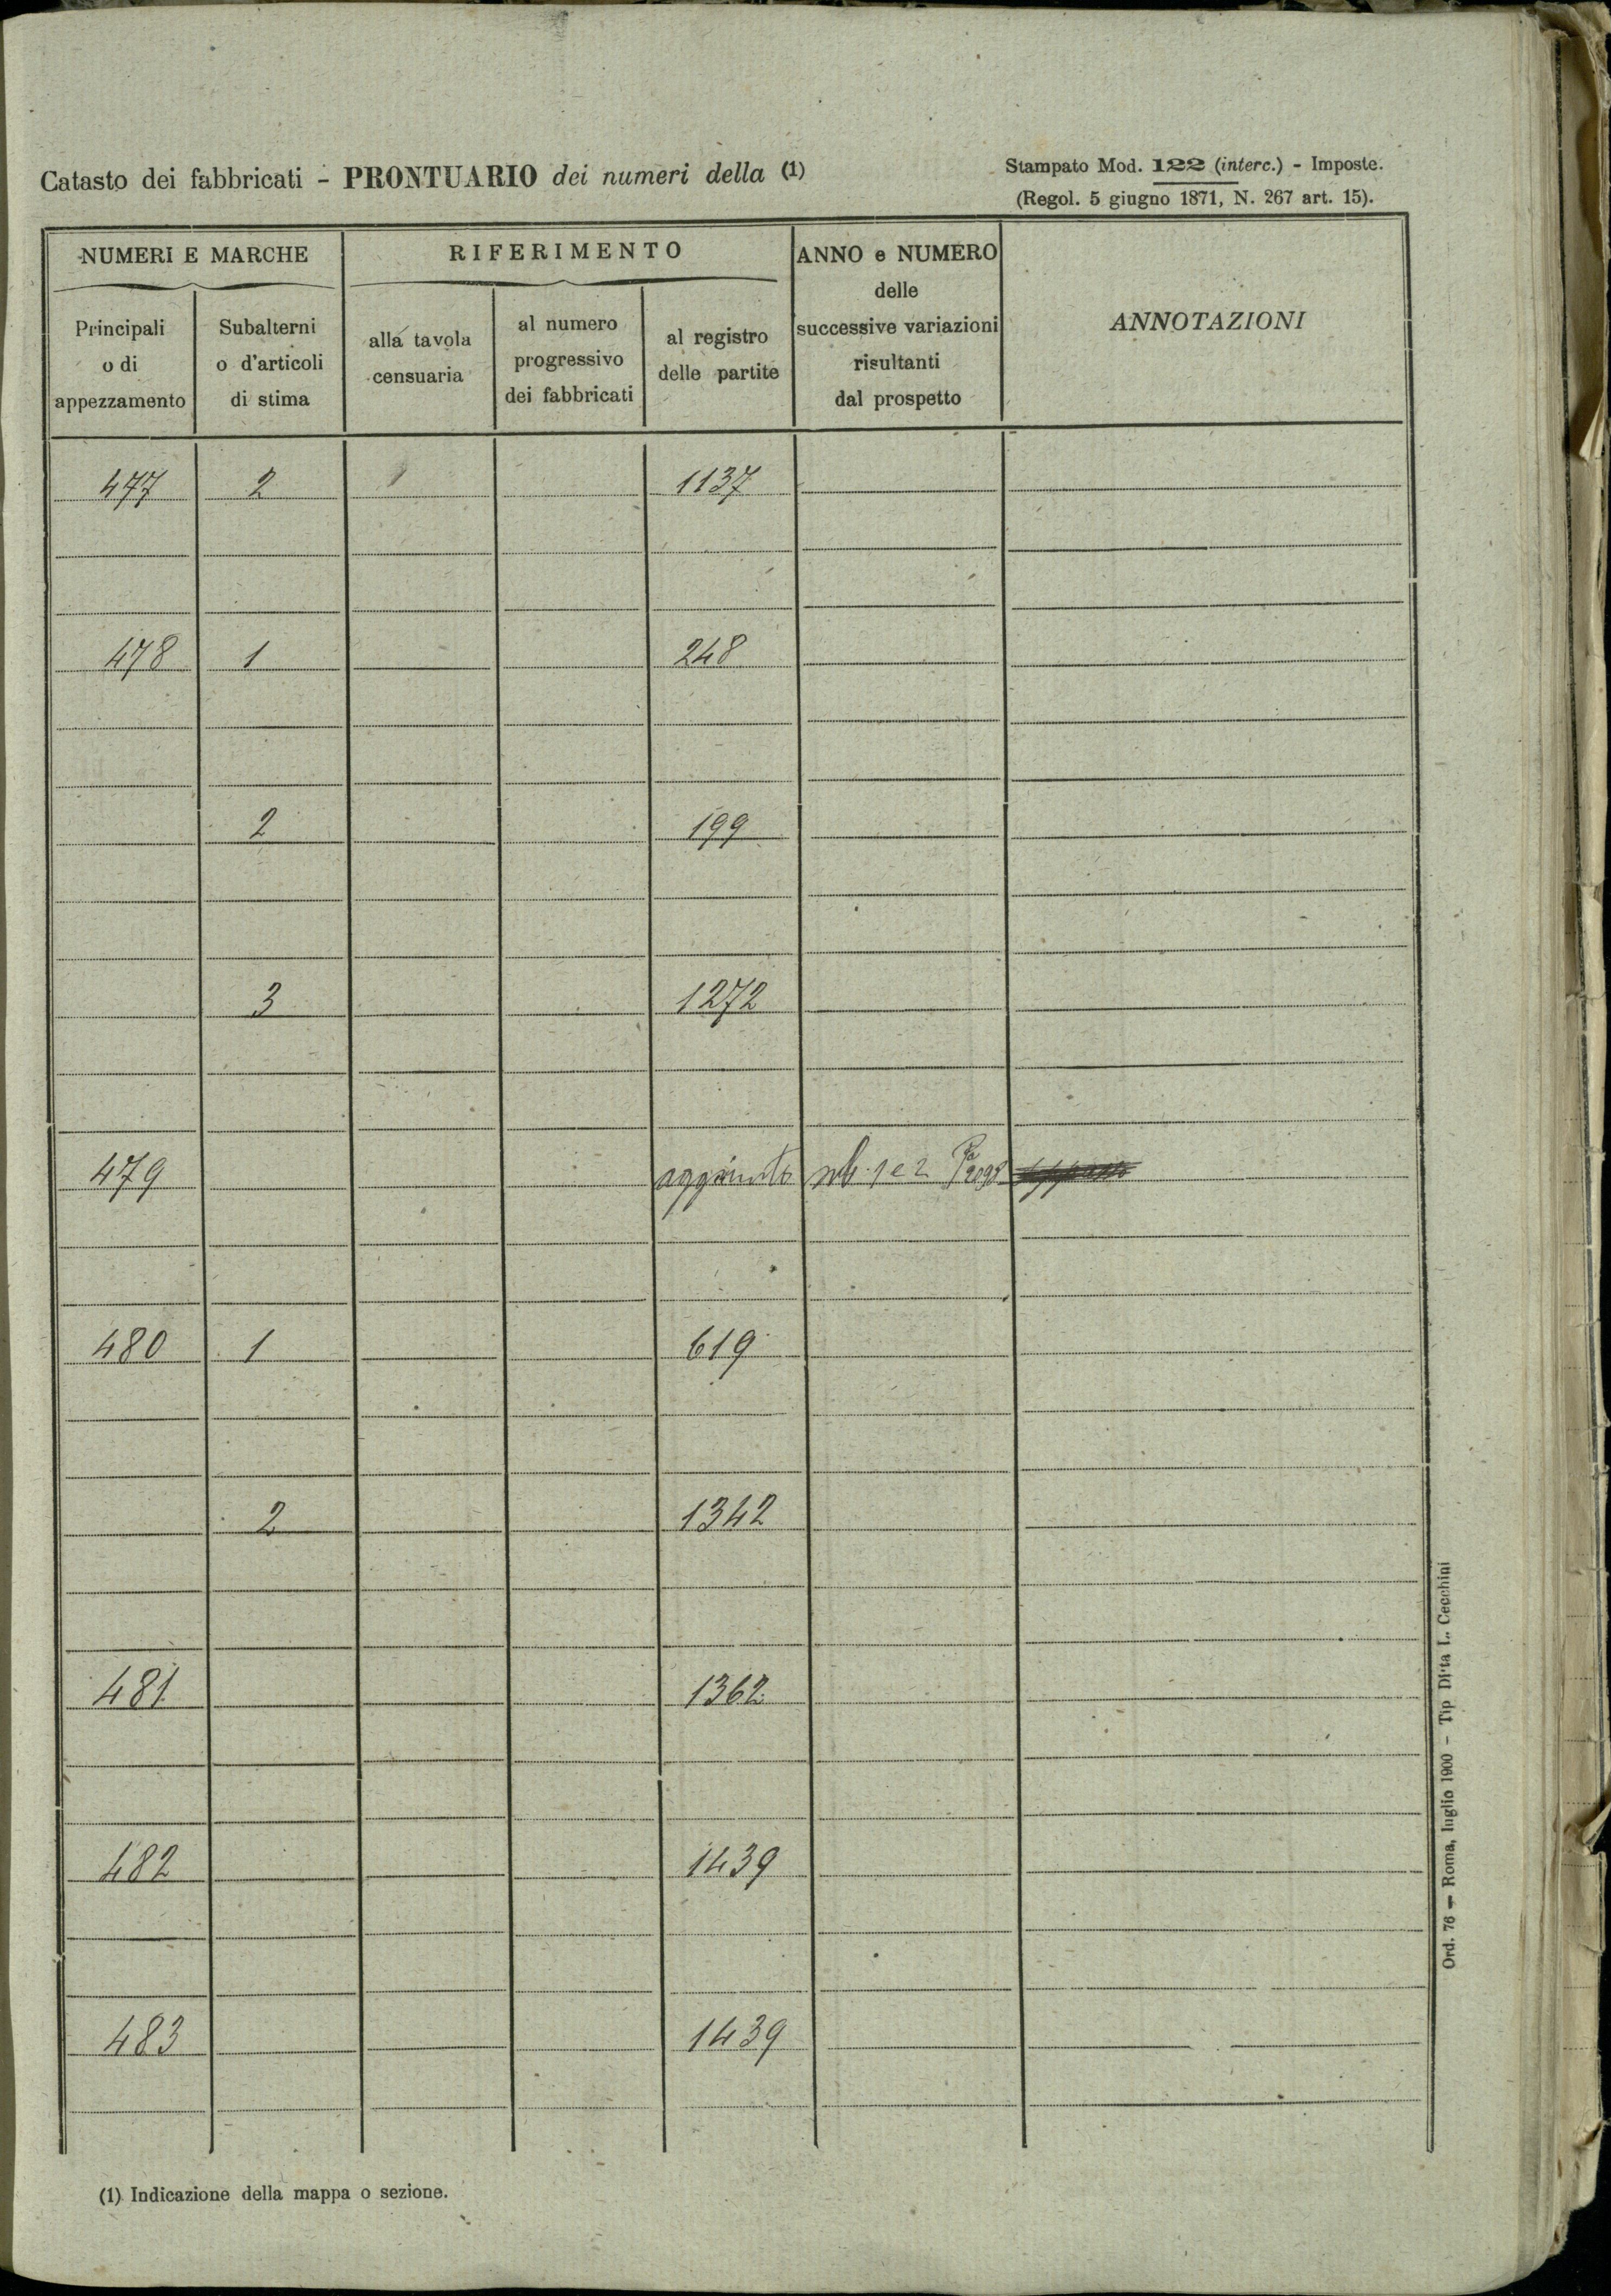 Catasto dei fabbricati - PRONTUARIO dei numeri della (1)
Stampato Mod. 122 (interc.) - Imposte.
(Regol. 5 giugno 1871, N. 267 art. 15).
NUMERI E MARCHE
RIFERIMENTO
ANNO e NUMERO
delle
successive variazioni
risultanti
dal prospetto
ANNOTAZIONI
Principali
o di
appezzamento
Subalterni
o d'articoli
di stima
alla tavola
censuaria
al numero
progressivo
dei fabbricati
al registro
delle partite
477 2 1137
478 1 248
2 199
3 1272
479 aggiunto sub. 1 e 2
480 1 619
2 1342
481 1362
482 1439
483 1439
(1) Indicazione della mappa o sezione.
Ord. 76 — Roma, luglio 1900 - Tip Ditta L. Cecchini